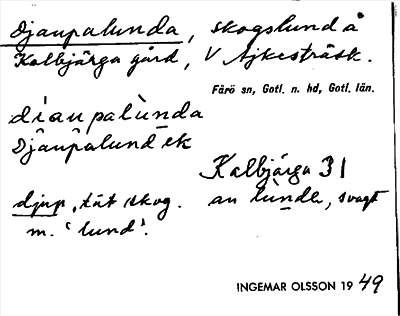 Djaupalunda, skogslund å
Kalbjärga gård, V Ajkesträsk.
Fårö sn, Gotl. n. hd, Gotl. län.
díaupalùnda
Djâupalund ēk
Kalbjárga 31
djup, tät skog. an lùnde, svagt
m. 'lund'.
INGEMAR OLSSON 19 49